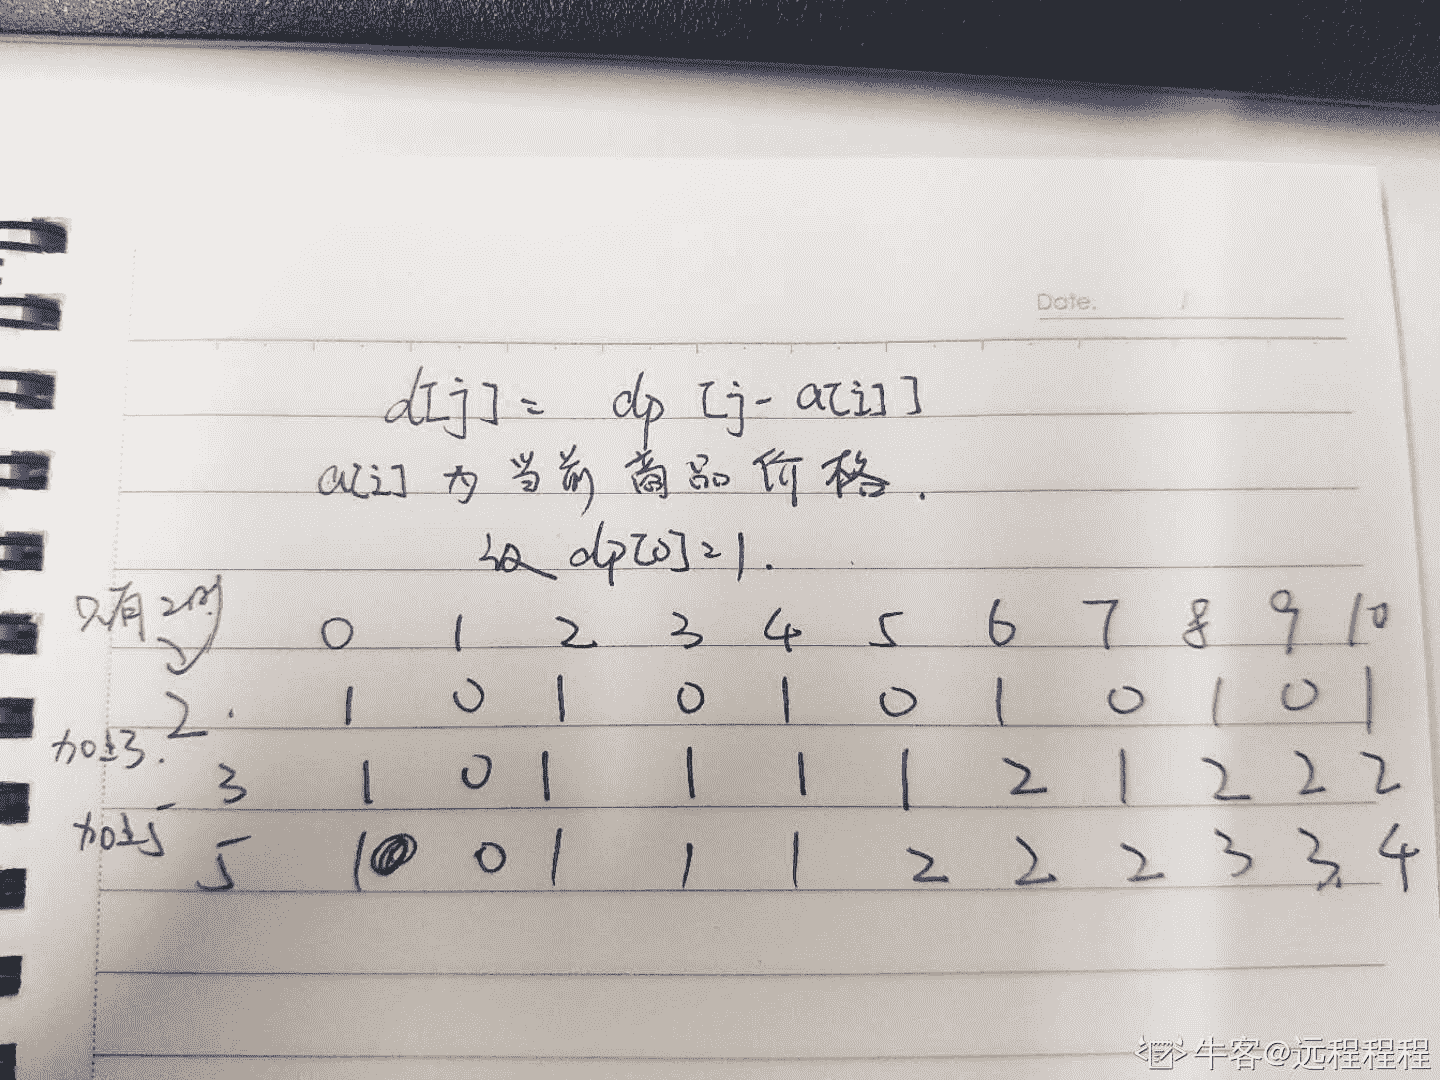 Date.
d[j] = dp [j - a[i]]
a[i] 为当前商品价格.
设 dp[0]=1.
只有2时
0 1 2 3 4 5 6 7 8 9 10
2. 1 0 1 0 1 0 1 0 1 0 1
加上3.
3 1 0 1 1 1 1 2 1 2 2 2
加上5
5 1 0 1 1 1 2 2 2 3 3 4
牛客@远程程程